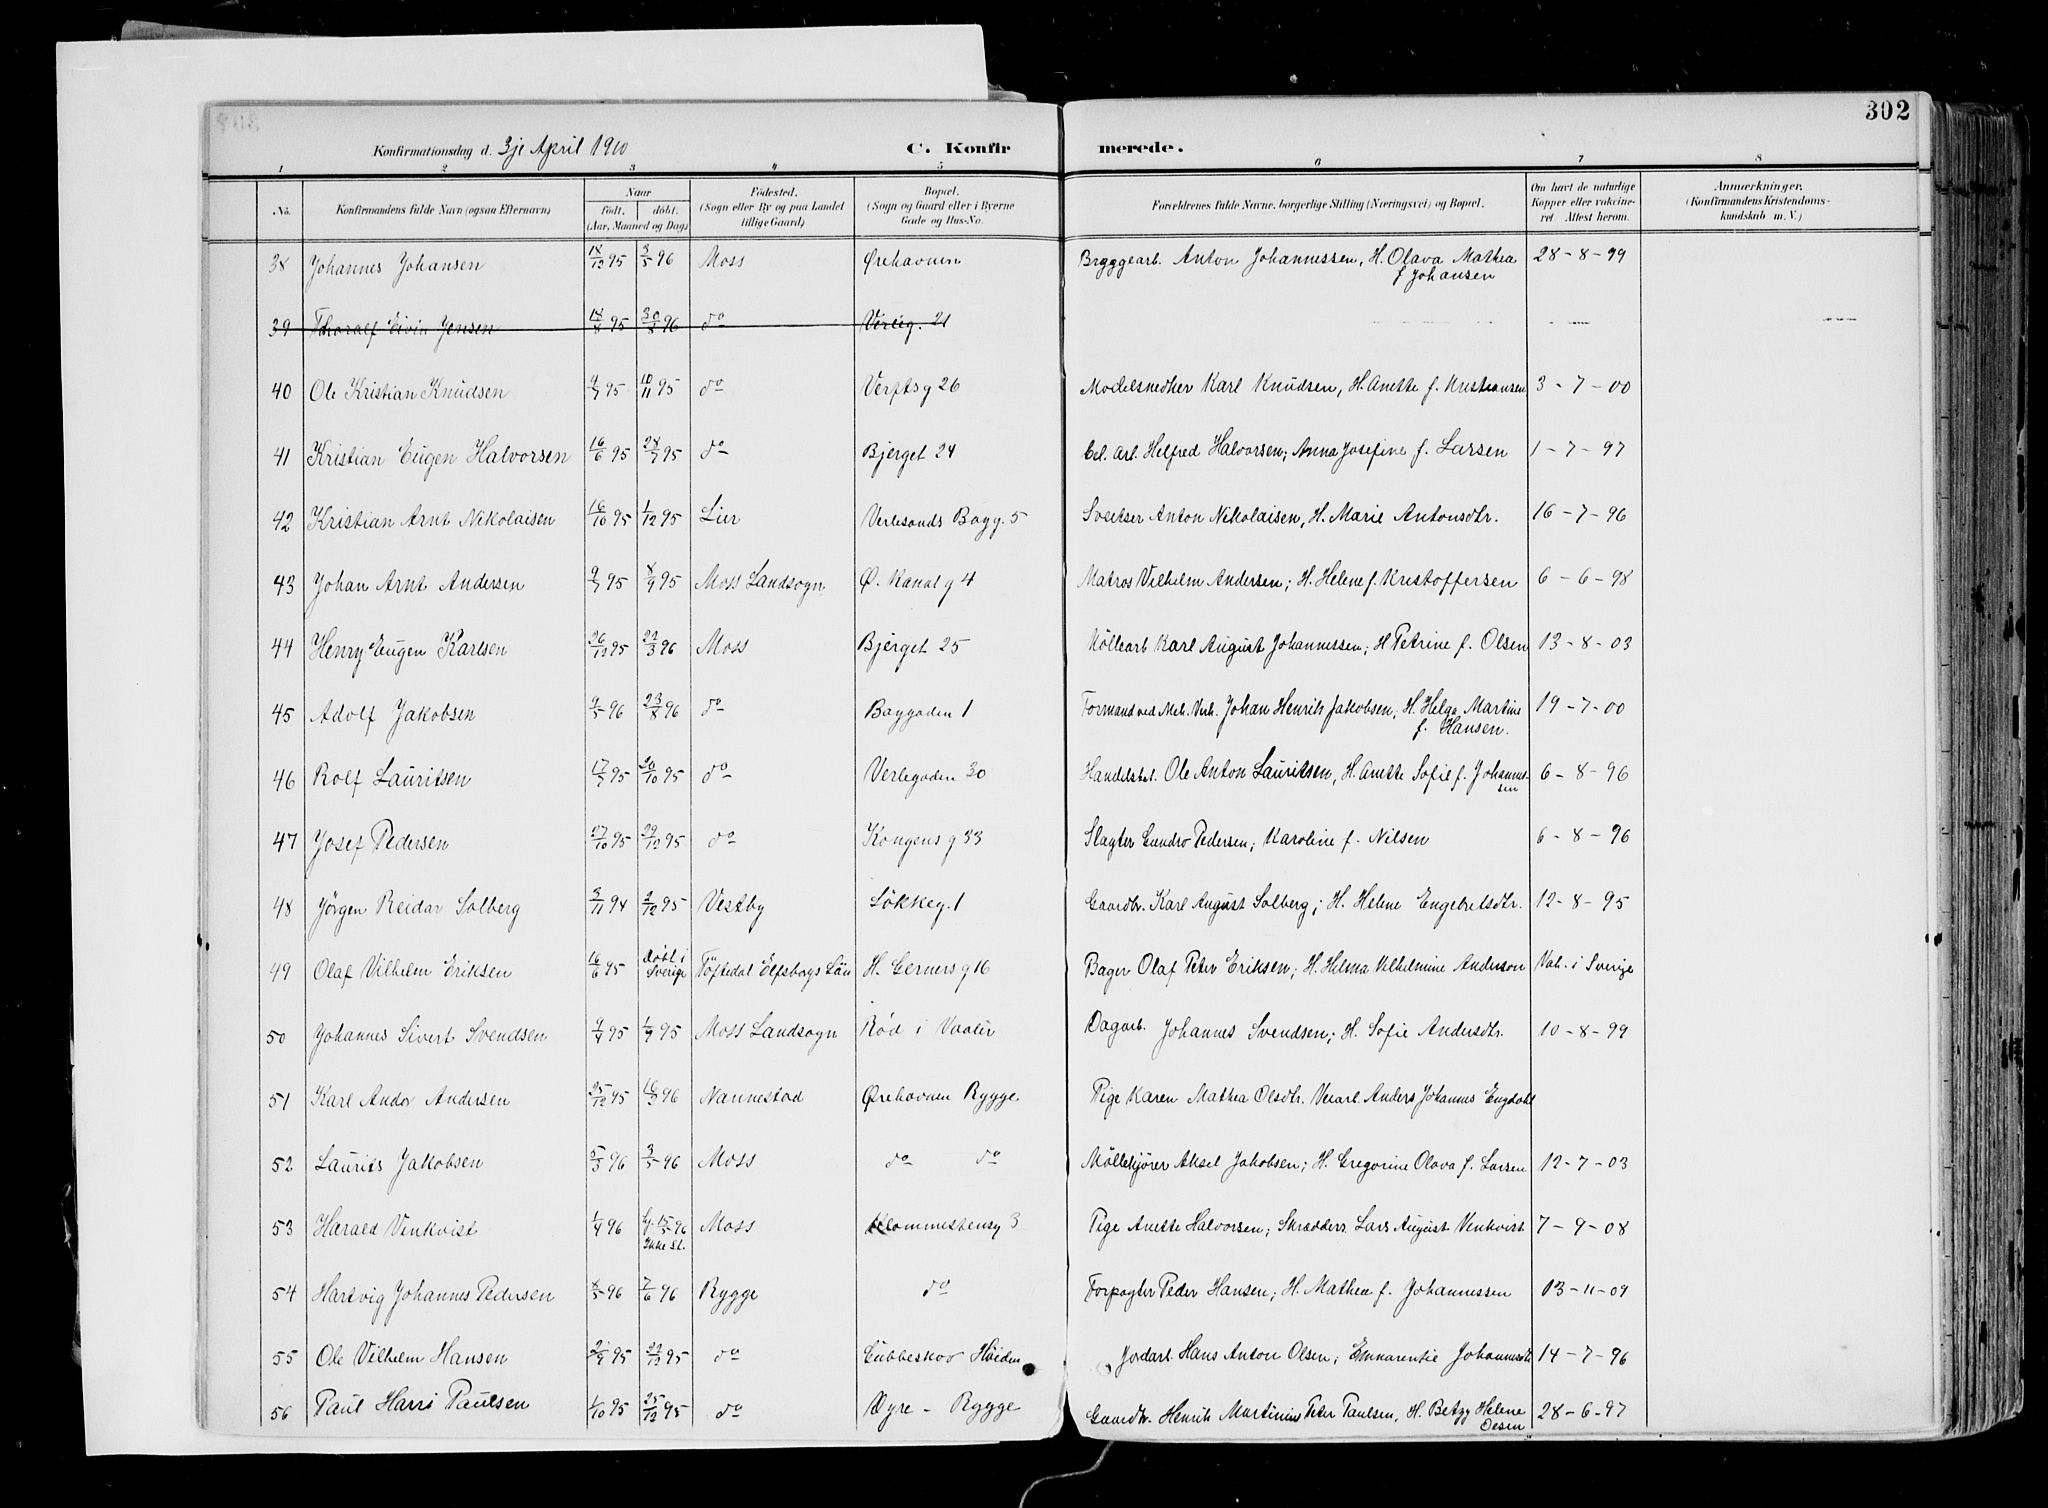 302
Konfirmationsdag d. 3je April 1910 C. Konfirmerede.
1 2 3 4 5 6 7 8
No. Konfirmandens fulde Navn (ogsaa Efternavn) Naar født. døbt. (Aar, Maaned og Dag) Fødested. (Sogn eller By og paa Landet tillige Gaard) Bopæl. (Sogn og Gaard eller i Byerne Gade og Hus-No. Forældrenes fulde Navne, borgerlige Stilling (Næringsvei) og Bopæl. Om havt de naturlige Kopper eller vakcineret. Attest herom. Anmærkninger. (Konfirmandens Kristendomskundskab m. V.)
38 Johannes Johansen 18/12 95 3/5 96 Moss Ørehavnen Bryggearb. Anton Johannessen, H. Olava Mathea f Johansen 28-8-99
39 Thoralf Eivin Jensen 18/8 95 96 do Verleg. 21
40 Ole Kristian Knudsen 95 10/11 95 do Verftsg 26 Modelsnedker Karl Knudsen, H. Anette f. Kristiansen 3-7-00
41 Kristian Eugen Halvorsen 16/6 95 28/7 95 do Bjerget 24 Cel. Arb. Helfred Halvorsen; Anna Josefine f. Larsen 1-7-97
42 Kristian Arnt Nikolaisen 16/10 95 1/12 95 Lier Verlesands Bagg. 5 Sveitser Anton Nikolaisen, H. Marie Antonsdtr. 16-7-96
43 Johan Arnt Andersen 9/7 95 8/9 95 Moss Landsogn Ø. Kanalg 4 Matros Vilhelm Andersen; H. Helene f. Kristoffersen 6-6-98
44 Henry Eugen Karlsen 26/12 95 22/3 96 Moss Bjerget 25 Møllearb Karl August Johannessen; H Petrine f. Olsen 13-8-03
45 Adolf Jakobsen 9/5 96 23/8 96 do Baggaden 1 Formand ved Mek. Verk. Johan Henrik Jakobsen, H. Helga Martine f. Hansen. 19-7-00
46 Rolf Lauritsen 17/7 95 20/10 95 do Verlegaden 30 Handelsbet. Ole Anton Lauritsen, H. Anette Sofie f. Johannessen 6-8-96
47 Josef Pedersen 27/10 95 29/12 95 do Kongensg 33 Slagter Gundro Pedersen; Karoline f. Nilsen 6-8-96
48 Jörgen Reidar Solberg 3/11 94 2/12 95 Vestby Løkkeg. 1 Gaardbr. Karl August Solberg; H. Helene Engebretsdtr. 12-8-95
49 Olaf Vilhelm Eriksen 16/6 95 døbt i Sverige Töftedal Elfsborgs Län H. Gernersg 16 Bager Olaf Peter Eriksen; H. Hilma Vilhelmine Anderson Vak. i Sverige
50 Johannes Sivert Svendsen 9/4 95 1/9 95 Moss Landsogn Rød i Vaaler Dagarb. Johannes Svendsen; H. Sofie Andersdtr. 10-8-99
51 Karl Andor Andersen 25/12 95 16/3 96 Nannestad Ørehavnen Rygge Pige Karen Mathea Olsdtr. Veiarb. Anders Johannes Engdahl
52 Laurits Jakobsen 5/3 96 3/5 96 Moss do do Møllekjører Aksel Jakobsen; H. Gregorine Olava f. Larsen 12-7-03
53 Harald Venkvist 1/4 96 15/5 96 Ikke St. Moss Klommestensg 3 Pige Anette Halvorsen; Skrædders. Lars August Venkvist 7-9-08
54 Hartvig Johannes Pedersen 8/5 96 7/6 96 Rygge do Forpagter Peder Hansen; H. Mathea f. Johannessen 13-11-09
55 Ole Vilhelm Hansen 95 22/12 95 do Gubbeskov Høiden Jordarb. Hans Anton Olsen; Emmarentie Johannesdtr 14-7-96
56 Paul Harri Paulsen 1/10 95 25/12 95 do Øyre - Rygge Gaardbr. Henrik Martinius Peter Paulsen, H. Betzy Helene Oesen 28-6-97